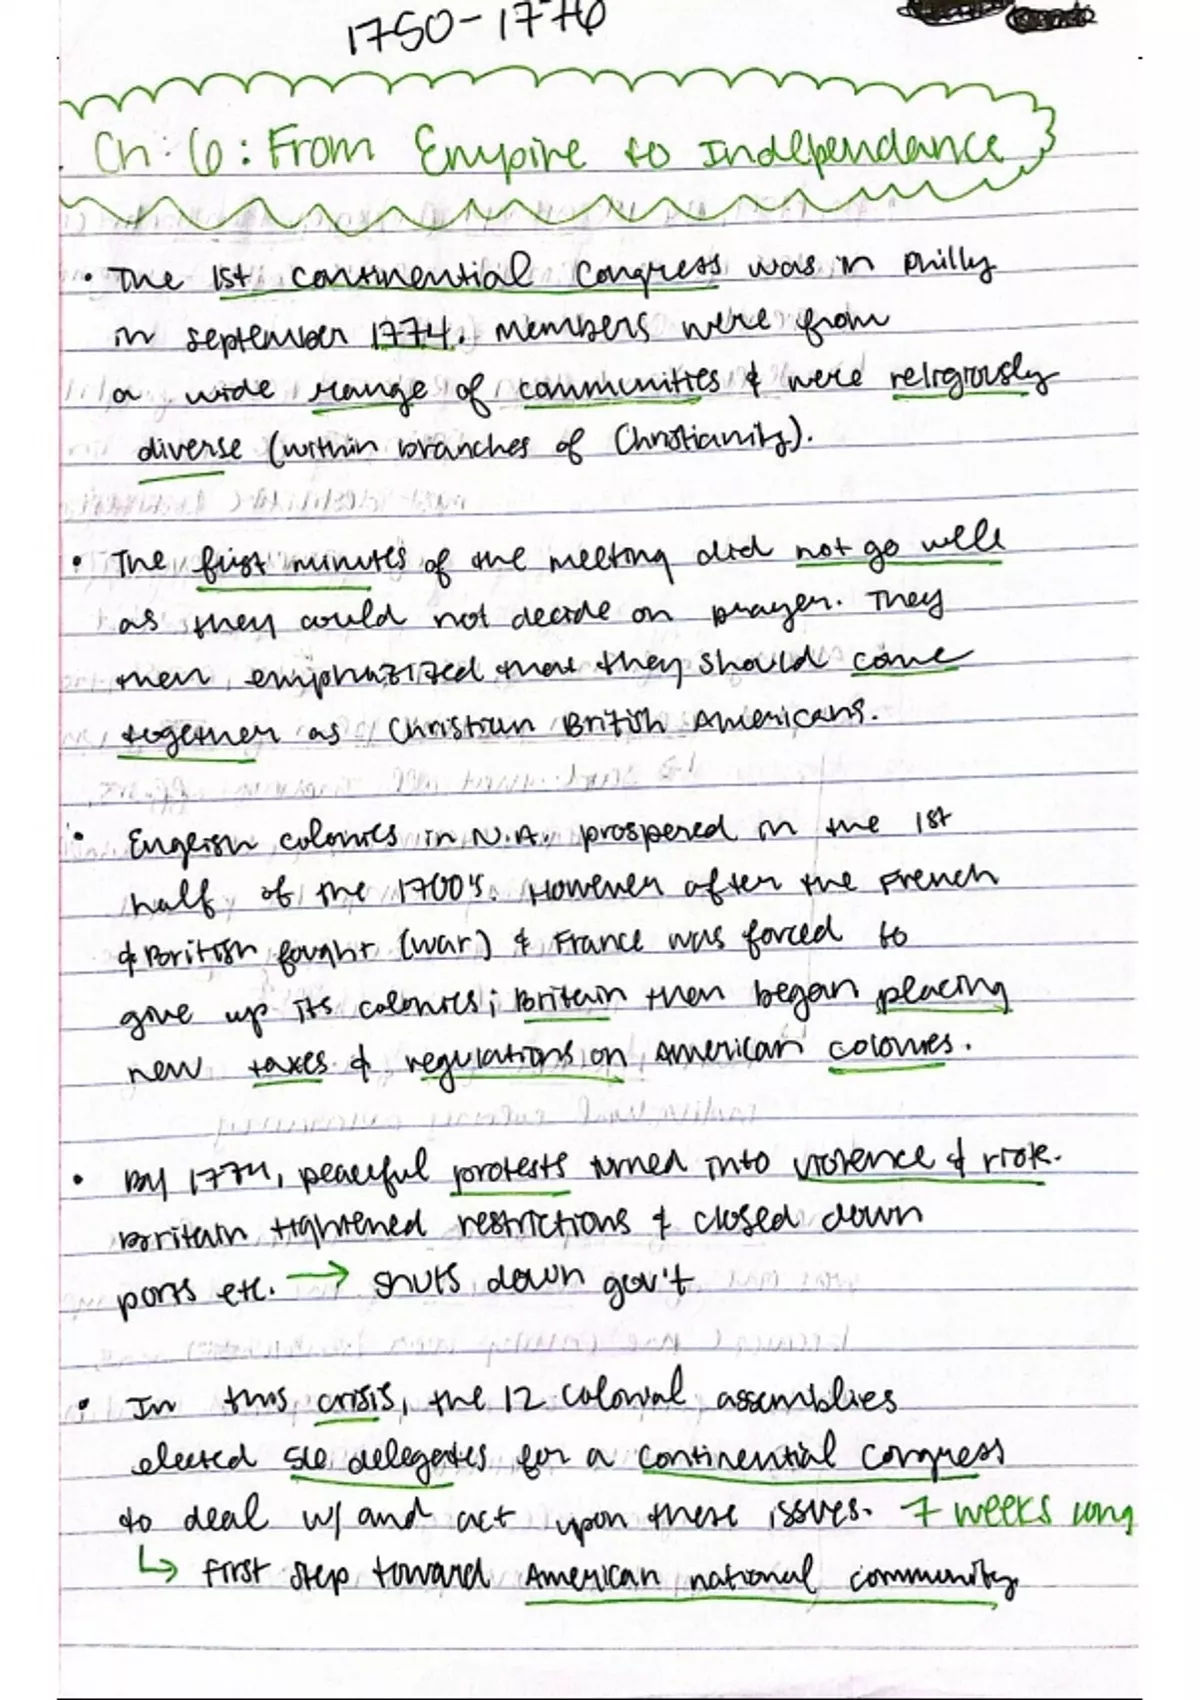 1750-1776
Ch: 6: From Empire to Independance
• The 1st continential Congress was in Philly
in september 1774. Members were from
a wide range of communities & were religiously
diverse (within branches of Christianity).
• The first minutes of the meeting did not go well
as they could not decide on prayer. They
then emphazized that they should come
together as Christian British Americans.
• English colonies in N.A. prospered in the 1st
half of the 1700's. However after the French
& British fought (war) & France was forced to
give up its colonies; Britain then began placing
new taxes & regulations on American colonies.
• By 1774, peaceful protests turned into violence & riots.
Britain tightened restrictions & closed down
ports etc. → shuts down gov't
• In this crisis, the 12 colonial assemblies
elected 56 delegates for a continential Congress
to deal w/ and act upon these issues. 7 weeks long
↳ first step toward American national community